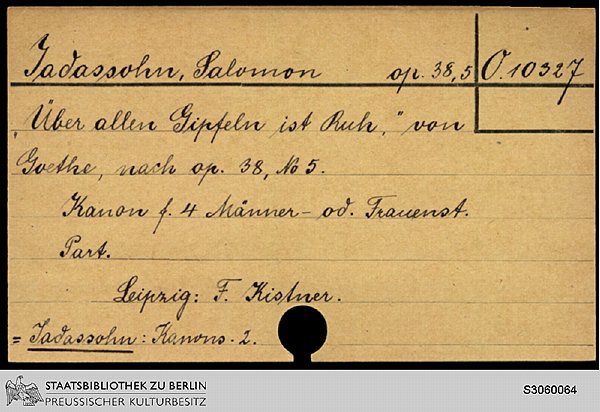 Jadassohn, Salomon op. 38,5 O. 10327
„Über allen Gipfeln ist Ruh,” von
Goethe, nach op. 38, No 5.
Kanon f. 4 Männer- od. Frauenst.
Part.
Leipzig: F. Kistner.
= Jadassohn: Kanons. 2.
STAATSBIBLIOTHEK ZU BERLIN
PREUSSISCHER KULTURBESITZ
S3060064